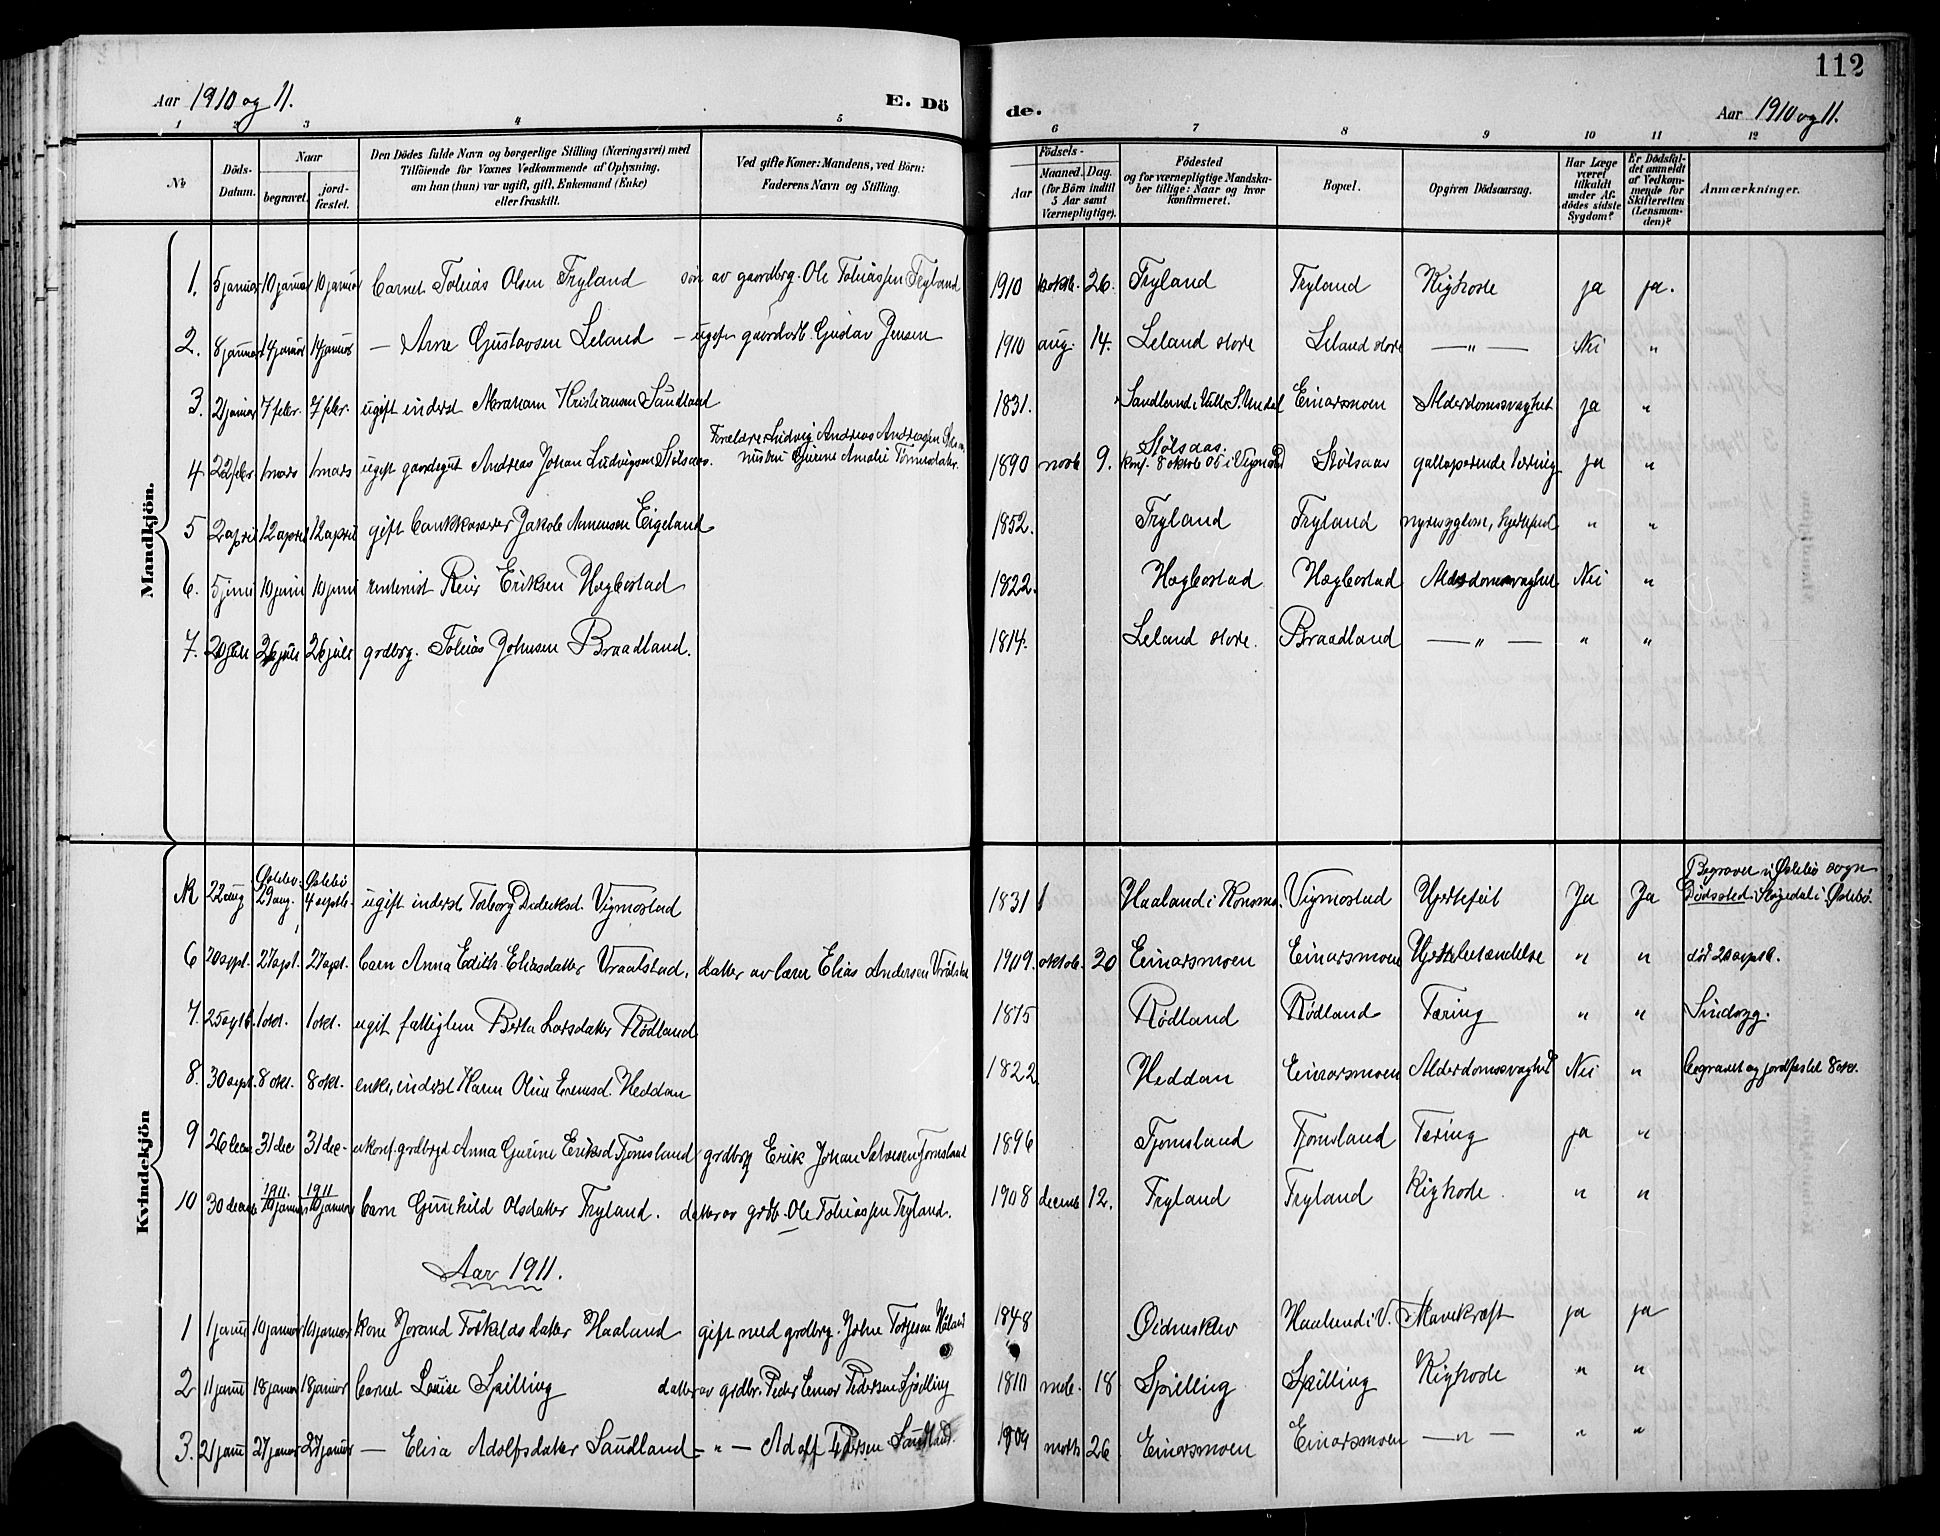 112
Aar 1910 og 11.
E. Dö
de.
Aar 1910 og 11.
1 2 3 4 5 6 7 8 9 10 11 12
No
Döds-Datum.
Naar
begravet.
jord-fæstet.
Den Dödes fulde Navn og borgerlige Stilling (Næringsvei) med
Tilföiende for Voxnes Vedkommende af Oplysning,
om han (hun) var ugift, gift, Enkemand (Enke)
eller fraskilt.
Ved gifte Koner: Mandens, ved Börn:
Faderens Navn og Stilling.
Födsels-
Aar
Maaned. Dag.
(for Börn indtil
5 Aar samt
Værnepligtige).
Födested
og for værnepligtige Mandska-
ber tillige: Naar og hvor
konfirmeret.
Bopæl.
Opgiven Dödsaarsag.
Har Læge
været
tilkaldt
under Af-
dödes sidste
Sygdom?
Er Dödsfal-
det anmeldt
af Vedkom-
mende for
Skifteretten
(Lensman-
den)?
Anmærkninger.
Mandkjön.
1. 5 januar 10 januar 10 januar barnet Tobias Olsen Tryland søn av gaardbrg. Ole Tobiassen Tryland 1910 26. Tryland Tryland Kighoste ja ja.
2. 8 januar 14 januar 14 januar — Arne Gustavsen Leland — ugift Gustav Jensen 1910 aug. 14. Leland store Leland store — " — Nei "
3. 21 januar 7 febr. 7 febr. ugift inderst Abraham Kristiansen Saudland 1831. Saudland i Valle S. Undal Einarsmoen Alderdomssvaghet ja "
4 22 febr 1 mars 1 mars ugift gaardsgut Andreas Johan Ludvigsen Stølsaas. Forældre: Ludvig Andreas Andreasen og hustru Gurine Amalie Tønnesdatter. 1890 novb 9. Stølsaas. konf. 8 oktob 05 i Vigmostad Stølsaas galloperende tæring ja "
5 2 april 12 april 12 april gift bankkasserer Jakob Arnensen Eigeland 1852. Tryland Tryland nyresygdom, hjertefeil " "
6. 5 juni 10 juni 10 juni rentenist Reier Eriksen Hægbostad 1822. Hægbostad Hægbostad Alderdomssvaghet Nei "
7. 20 juli 26 juli 26 juli grdbrg. Tobias Johnsen Braadland. 1814. Leland store. Braadland — " — " "
Kvindekjön
22 aug Øislebø 29 aug. Øislebø 4 septb. ugift inderst Torborg Dideriksd. Vigmostad 1831 Haaland i Konsmo. Vigmostad Hjertefeil Ja Ja Begravet i Øslebø sogn
Dødssted: Skogedal i Øslebø.
6 20 sept. 27 spt. 27 spt. barn Anna Edith Eliasdatter Vraalstad, datter av lærer Elias Andersen Vrålstad 1909. oktob. 30 Einarsmoen Einarsmoen Hjernebetændelse " " død 20 septb.
7. 25 septb. 1 okt. 1 okt. ugift fattiglem Berta Larsdatter Rødland 1875 Rødland Rødland Tæring " " Sindssyg.
8. 30 sept. 8 okt. 8 okt. enke, inderst Karen Oline Evensd. Heddan 1822. Heddan Einarsmoen Alderdomssvaghed Nei " begravet og jordfæstet 8 okt.
9 26 decem 31 dec 31 dec- ukonf. grdbrgd Anna Gurine Eriksd Fjomsland grdbrg Erik Johan Salvesen Fjomsland 1896 Fjomsland Fjomsland Tæring ja "
10 30 decemb 1911 10 januar 1911 10 januar barn Gunhild Olsdatter Tryland. datter av grdb. Ole Tobiassen Tryland. 1908 decemb 12. Tryland Tryland Kighoste. " "
Aar 1911.
1 1 janu 10 januar 10 januar kone Jorand Torkelds datter Haaland gift med grdbrg. John Torjesen Håland 1848 Øidnesklev Haaland i V. Mavekræft ja ja
2 11 janu 18 januar 18 januar barnet Louise Spilling datter av grdbr. Peder Elmar Pedersen Spilling 1810 18 Spilling Spilling Kighoste " "
3. 21 janu 27 januar 27 januar — Elisa Adolfsdatter Saudland — " — Adolf Saudland. 1909 26 Einarsmoen Einarsmoen — " — " "